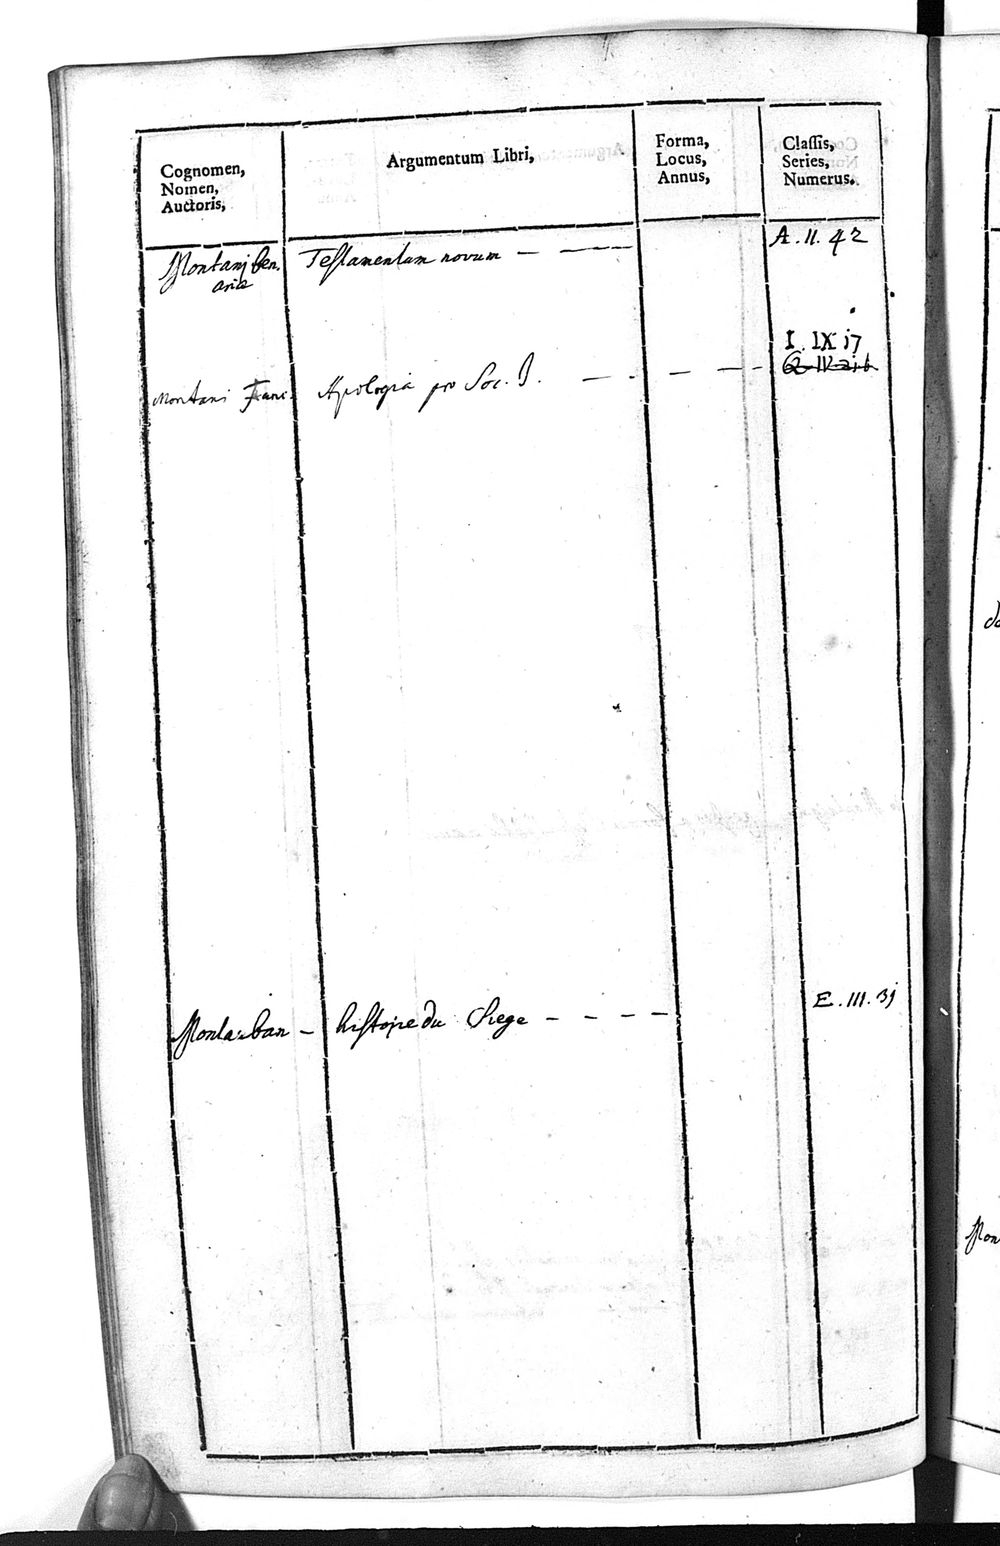 Cognomen,
Nomen,
Auctoris,
Argumentum Libri,
Forma,
Locus,
Annus,
Classis,
Series,
Numerus.
Montanj Ben.
aria
Testamentum novum — —
A. II. 42
I. IX 17
Montani Franc.
Apologia pro Soc. J. — — —
Montauban — histoire du Siege - - - -
E. III. 31